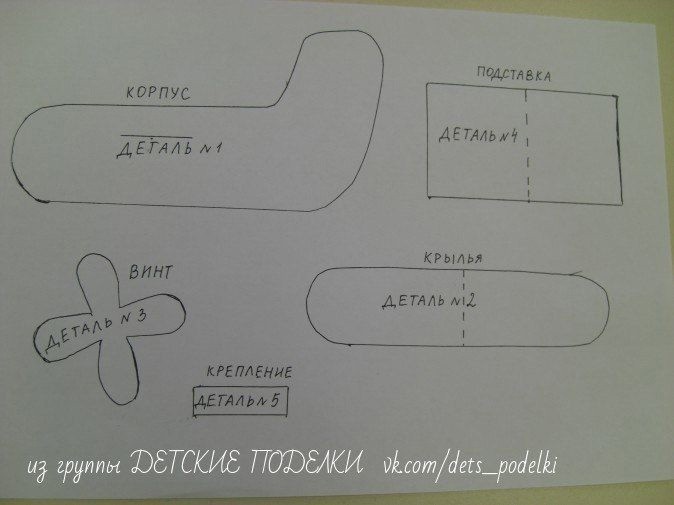 КОРПУС
ДЕТАЛЬ №1
ПОДСТАВКА
ДЕТАЛЬ №4
ВИНТ
ДЕТАЛЬ №3
КРЫЛЬЯ
ДЕТАЛЬ №2
КРЕПЛЕНИЕ
ДЕТАЛЬ №5
из группы ДЕТСКИЕ ПОДЕЛКИ vk.com/dets_podelki